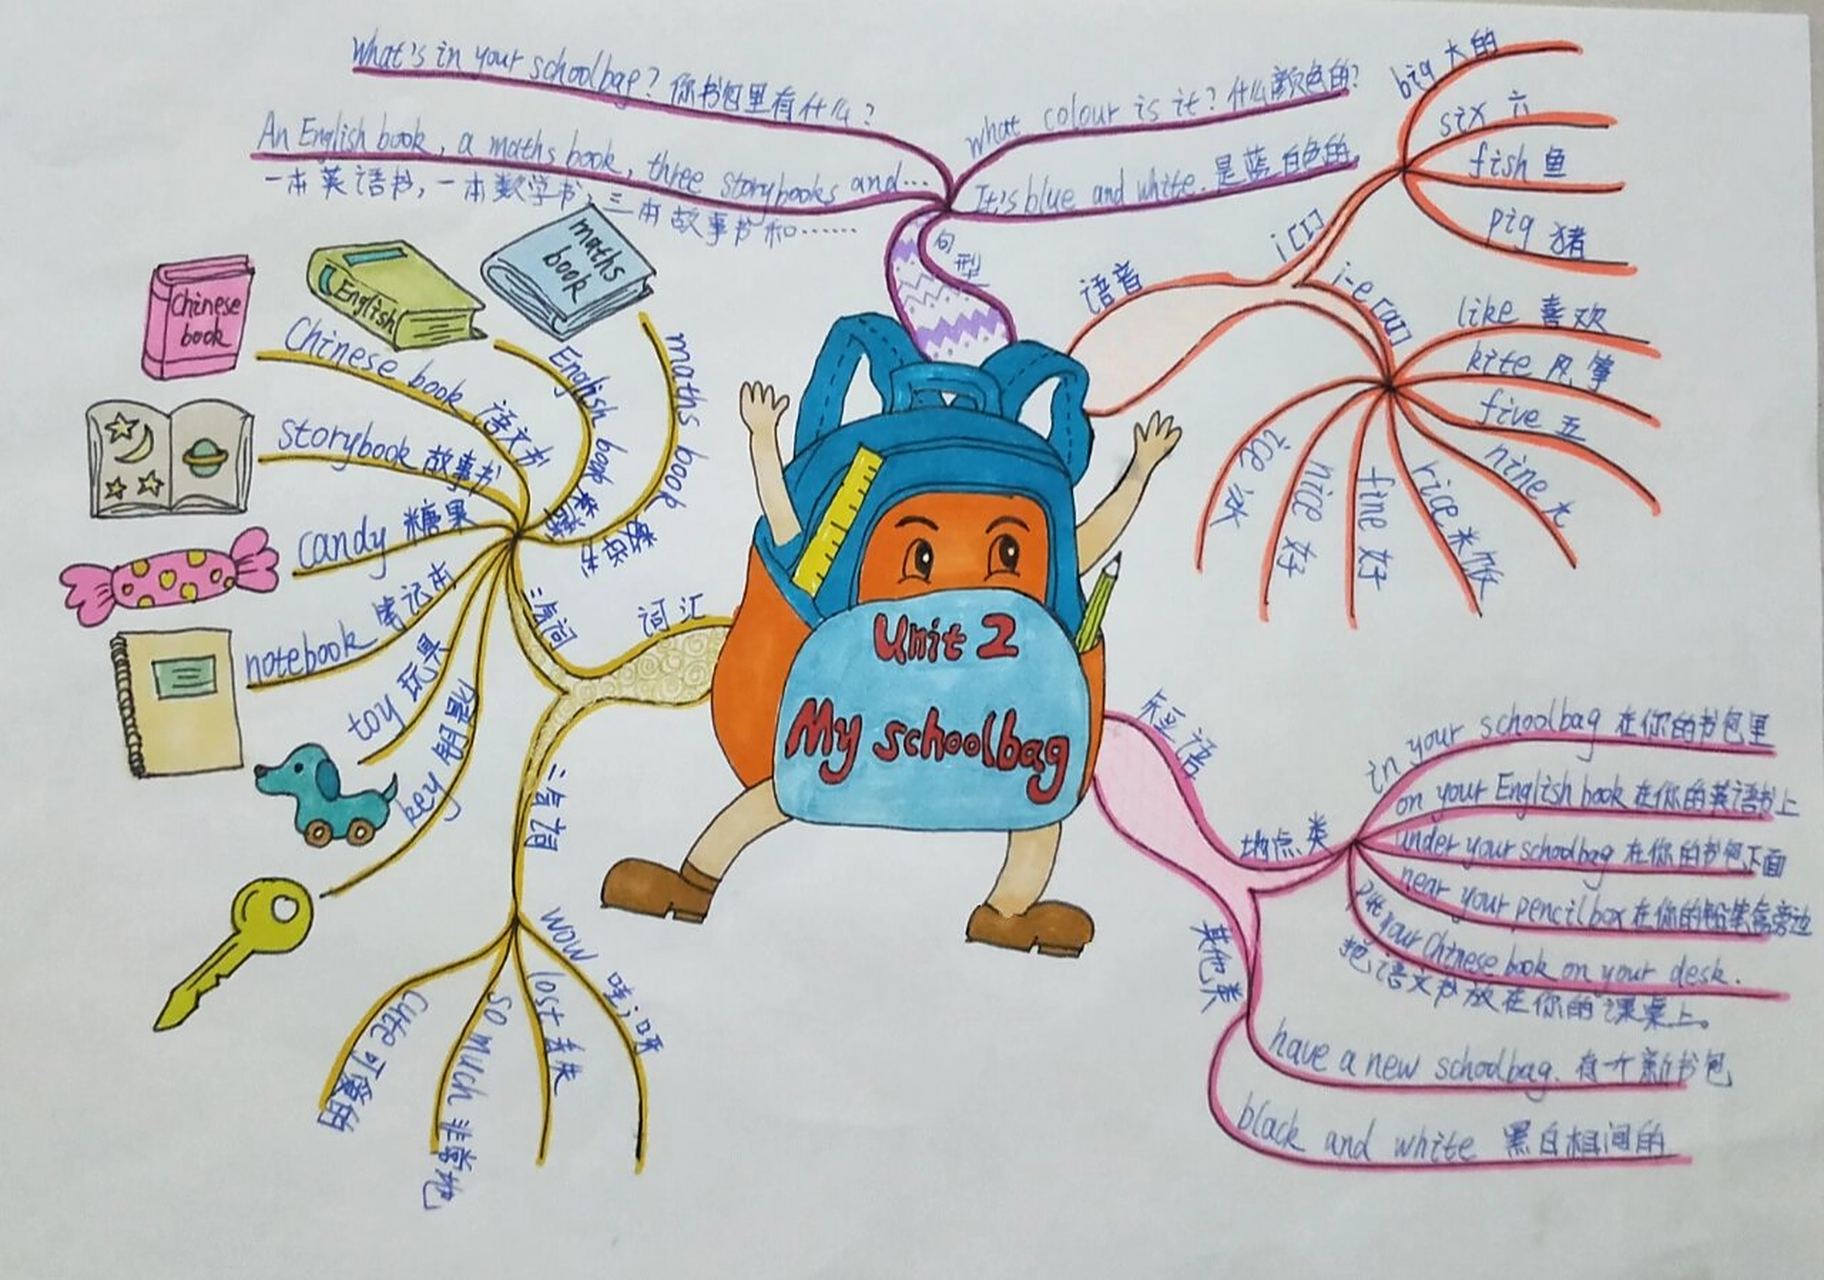 What's in your schoolbag? 你书包里有什么?
An English book, a maths book, three storybooks and...
一本英语书,一本数学书,三本故事书和……
what colour is it? 什么颜色的?
It's blue and white. 是蓝白色的.
句型
语音
i [I]
big 大的
six 六
fish 鱼
pig 猪
i-e [aI]
like 喜欢
kite 风筝
five 五
nine 九
rice 米饭
fine 好
nice 好
ice 冰
Chinese book
English
maths book
词汇
三会词
maths book 数学书
English book 英语书
Chinese book 语文书
storybook 故事书
candy 糖果
notebook 笔记本
toy 玩具
key 钥匙
二会词
wow 哇;呀
lost 丢失
so much 非常地
cute 可爱的
Unit 2
My schoolbag
短语
地点类
in your schoolbag 在你的书包里
on your English book 在你的英语书上
under your schoolbag 在你的书包下面
near your pencilbox 在你的铅笔盒旁边
put your Chinese book on your desk.
把语文书放在你的课桌上。
其他类
have a new schoolbag. 有一个新书包
black and white 黑白相间的